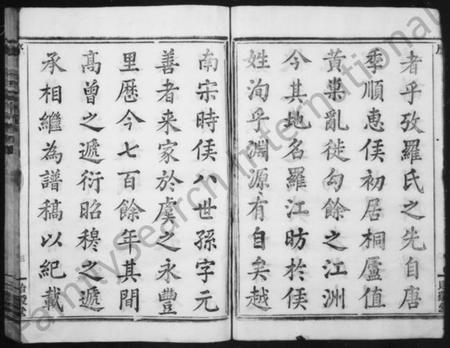 者乎攷羅氏之先自唐
季順惠侯初居桐廬值
黄巢亂徙勾餘之江洲
今其地名羅江昉於侯
姓洵乎淵源有自矣越
南宋時侯八世孫字元
善者来家於虞之永豐
里歴今七百餘年其間
高曾之遞衍昭穆之遞
承相繼為譜稿以紀載
FamilySearch International